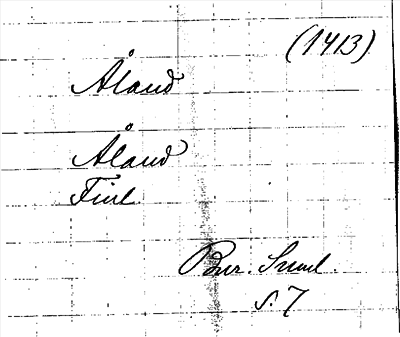 (1413)
Åland
Åland
Finl
Pour. Suul.
s. 7